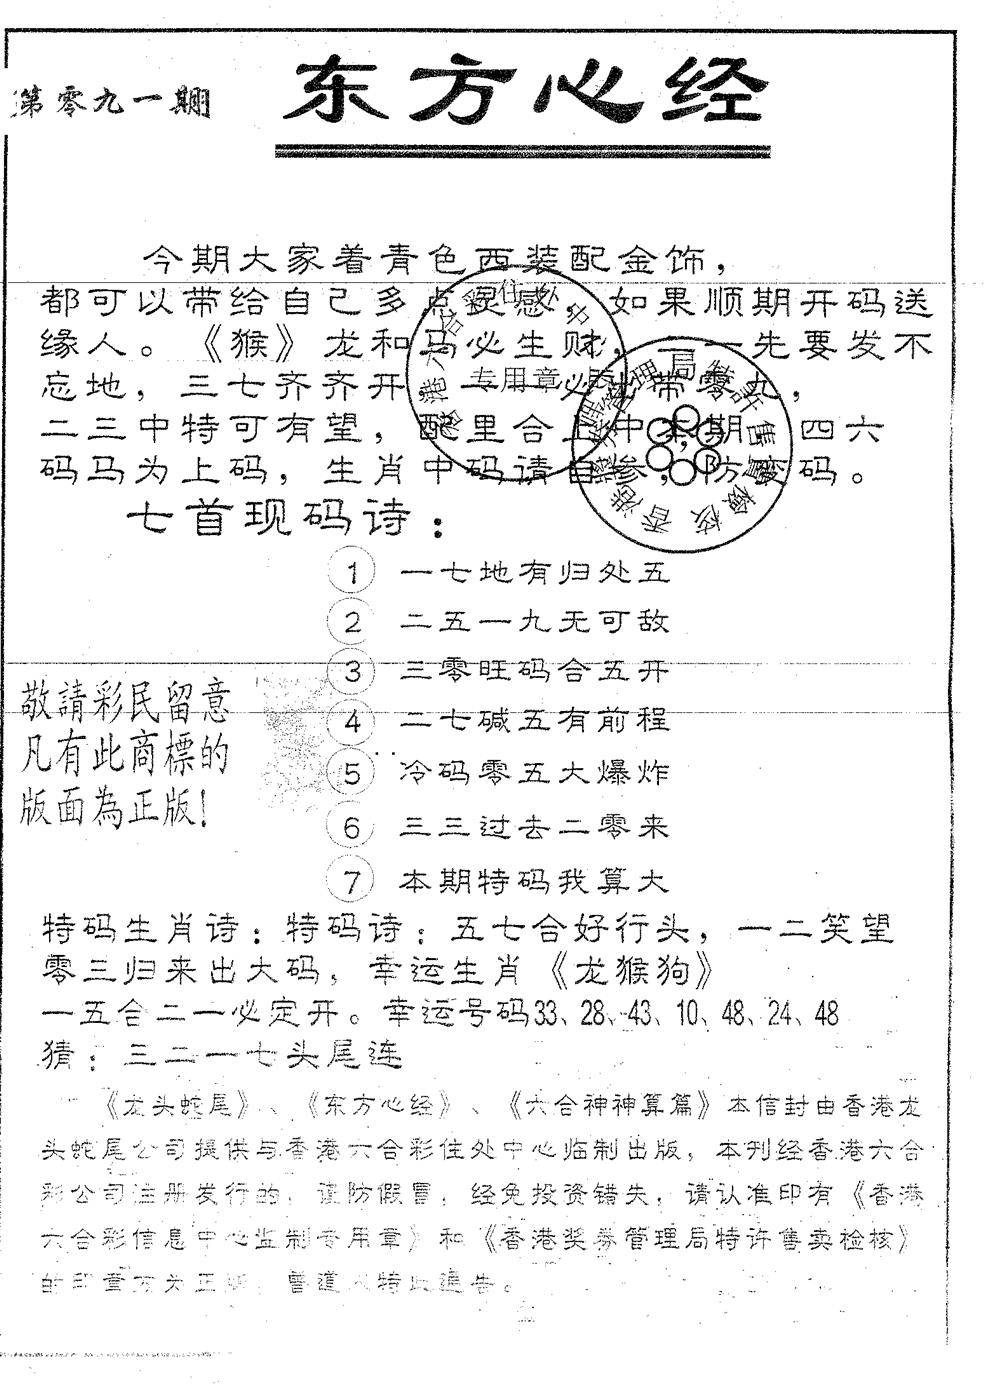 第零九一期
东方心经
今期大家着青色西装配金饰，
都可以带给自己多点灵感，如果顺期开码送
缘人。《猴》龙和马必生财，一一先要发不
忘地，三七齐齐开，一一必出带零九，
二三中特可有望，配里合上中本期，四六
码马为上码，生肖中码请自参，防 码。
七首现码诗：
1 一七地有归处五
2 二五一九无可敌
3 三零旺码合五开
4 二七碱五有前程
5 冷码零五大爆炸
6 三三过去二零来
7 本期特码我算大
敬請彩民留意
凡有此商標的
版面為正版！
特码生肖诗：特码诗：五七合好行头，一二笑望
零三归来出大码，幸运生肖《龙猴狗》
一五合二一必定开。幸运号码33、28、43、10、48、24、48
猜：三二一七头尾连
《龙头蛇尾》、《东方心经》、《六合神神算篇》本信封由香港龙
头蛇尾公司提供与香港六合彩住处中心临制出版，本刊经香港六合
彩公司注册发行的，谨防假冒，经免投资错失，请认准印有《香港
六合彩信息中心监制专用章》和《香港奖券管理局特许售卖检核》
的印章方为正版，曾道人特此通告。
专用章
香港奖券管理局特許售賣檢核